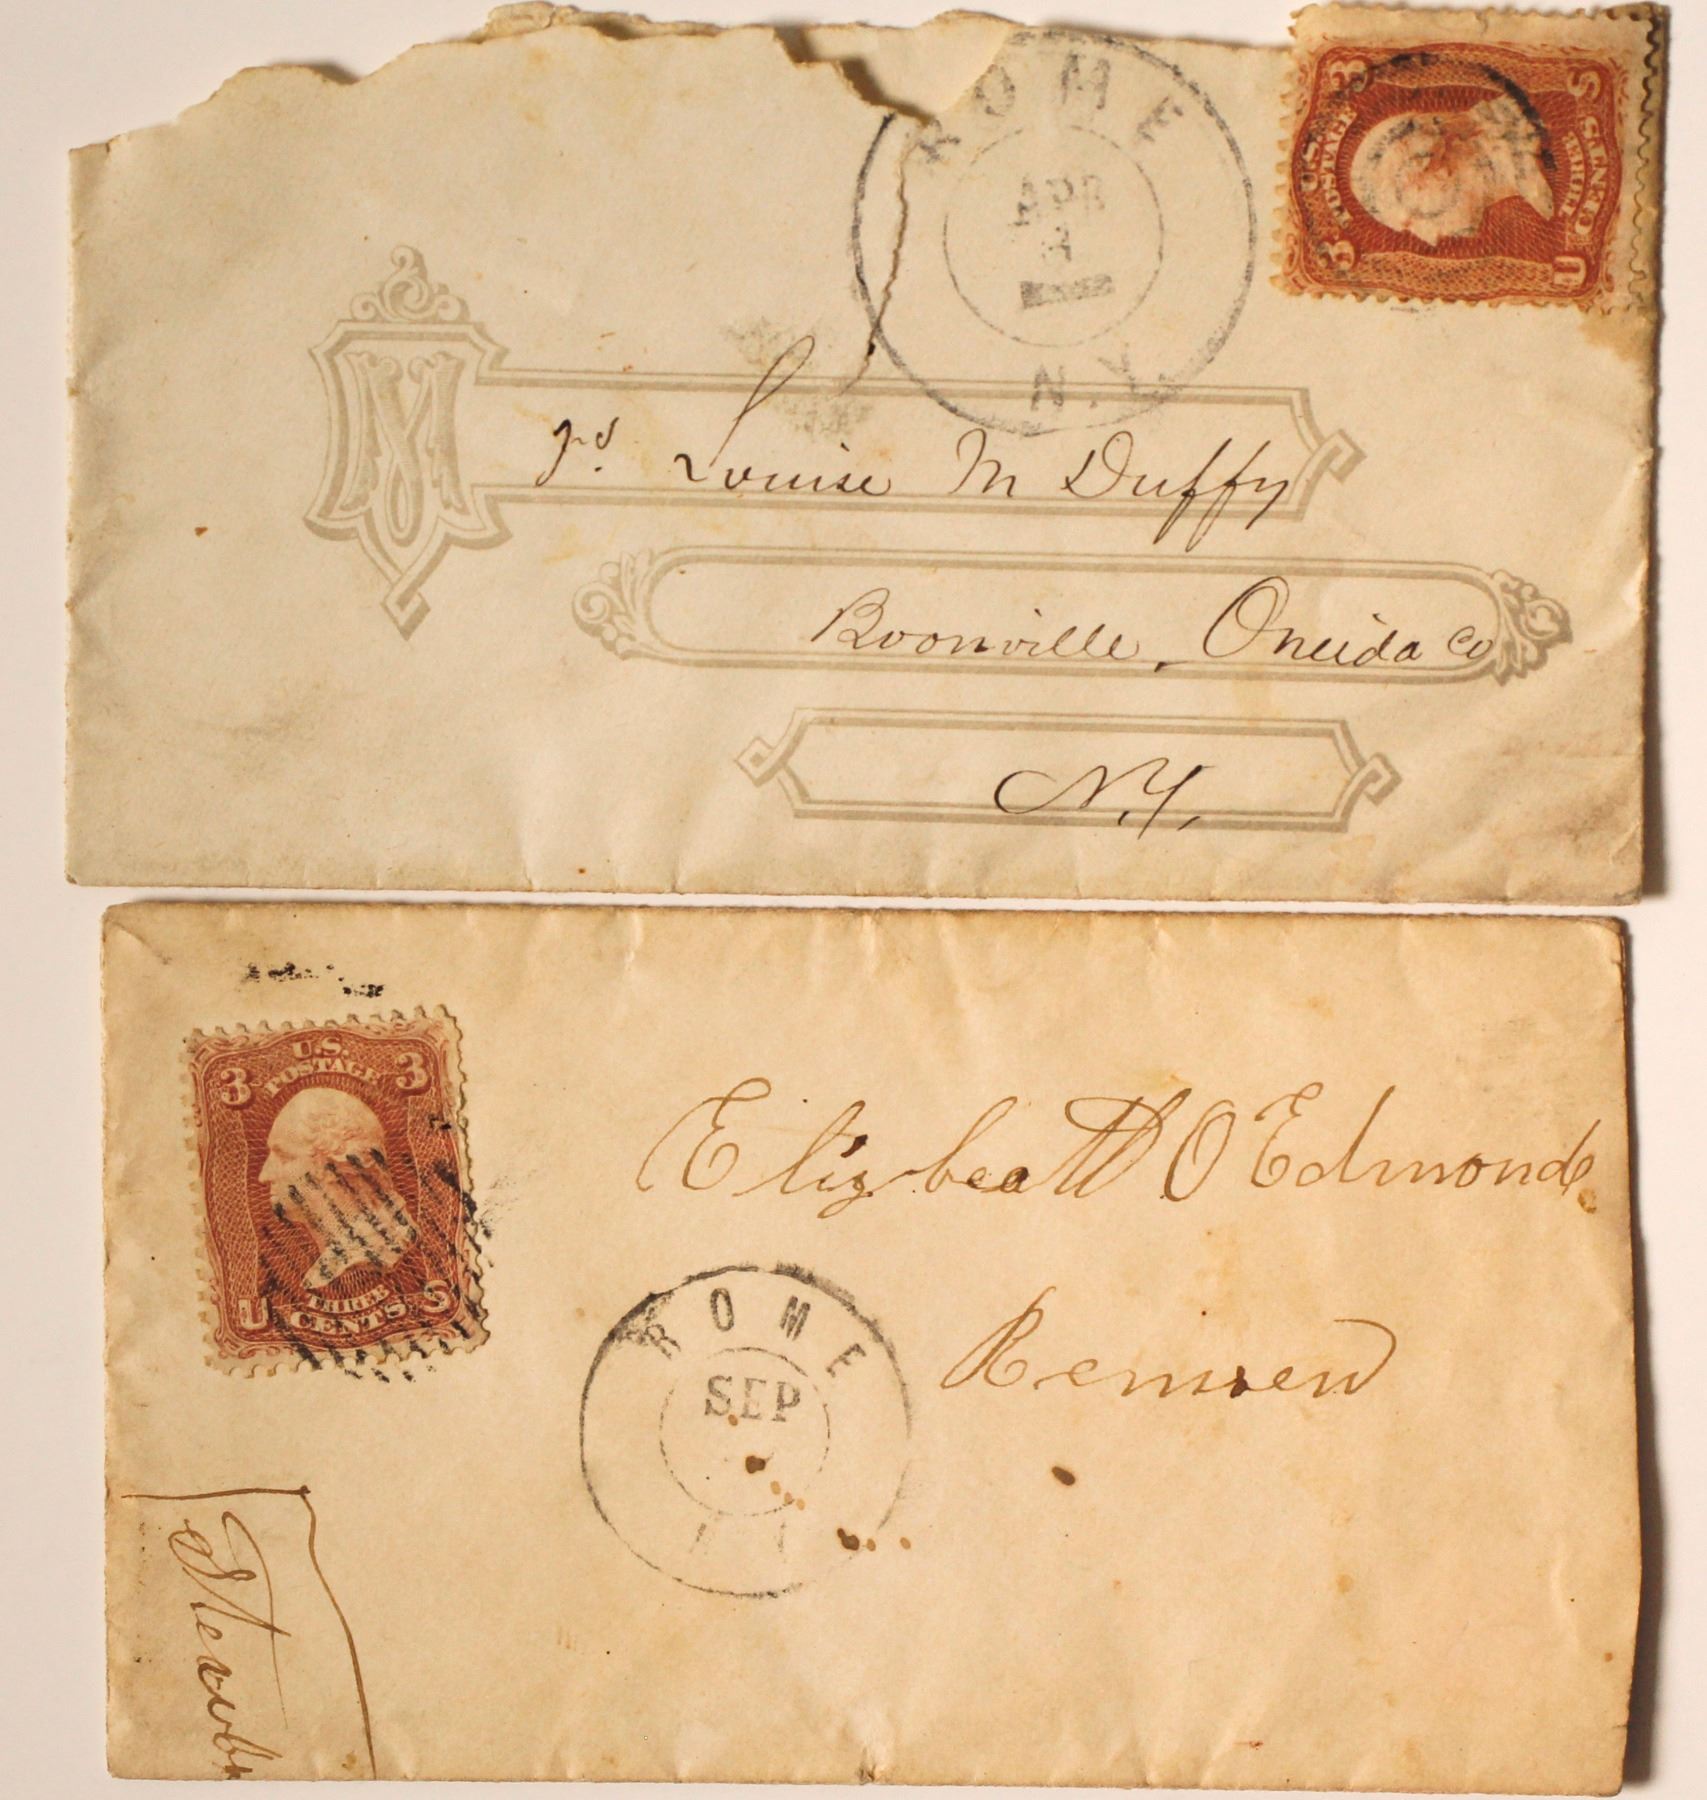 ROME
APR
N.Y.
U.S.
POSTAGE
3 3
THREE
CENTS
U S
M rs. Louise M Duffy
Boonville, Oneida Co
N.Y.
U.S.
POSTAGE
3 3
THREE
CENTS
U S
Elizbeath O Edmonds
ROME
SEP
Remsen